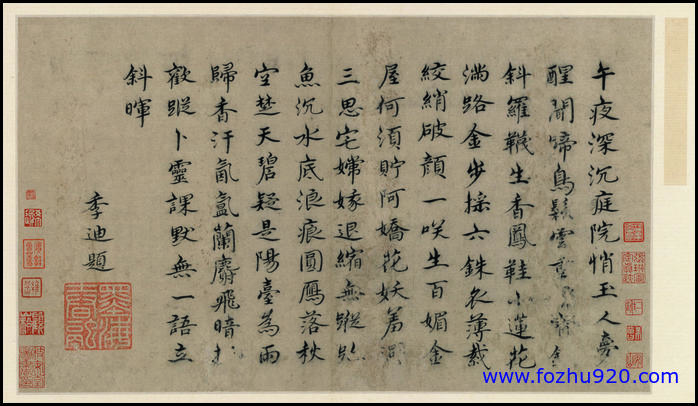 午夜深沉庭院悄玉人夢
醒聞啼鳥鬆雲重 金
斜羅韈生香鳳鞋小蓮花
滿路金步搖六銖衣薄裁
絞綃破顏一咲生百媚金
屋何須貯阿嬌花妖羞
三思宅嫦娥退縮無蹤
魚沉水底浪痕圓鴈落秋
空楚天碧疑是陽臺為雨
歸香汗氤氳蘭麝飛暗
歡蹤卜靈課默無一語立
斜暉
李迪題
www.fozhu920.com